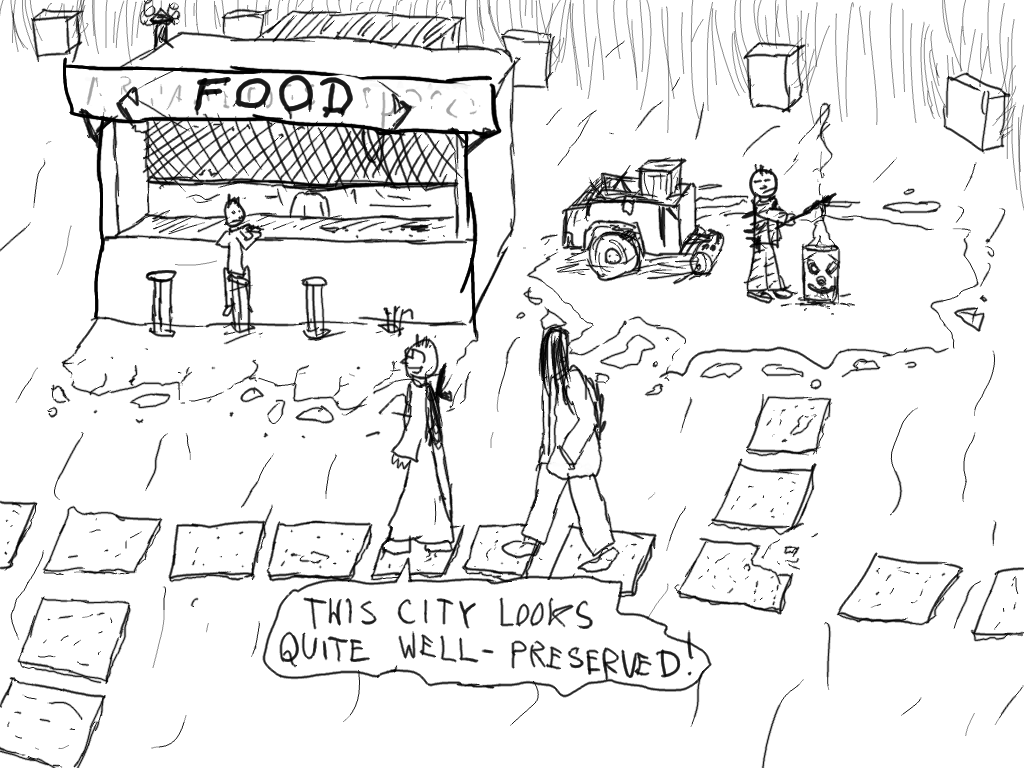 FOOD
THIS CITY LOOKS
QUITE WELL-PRESERVED!